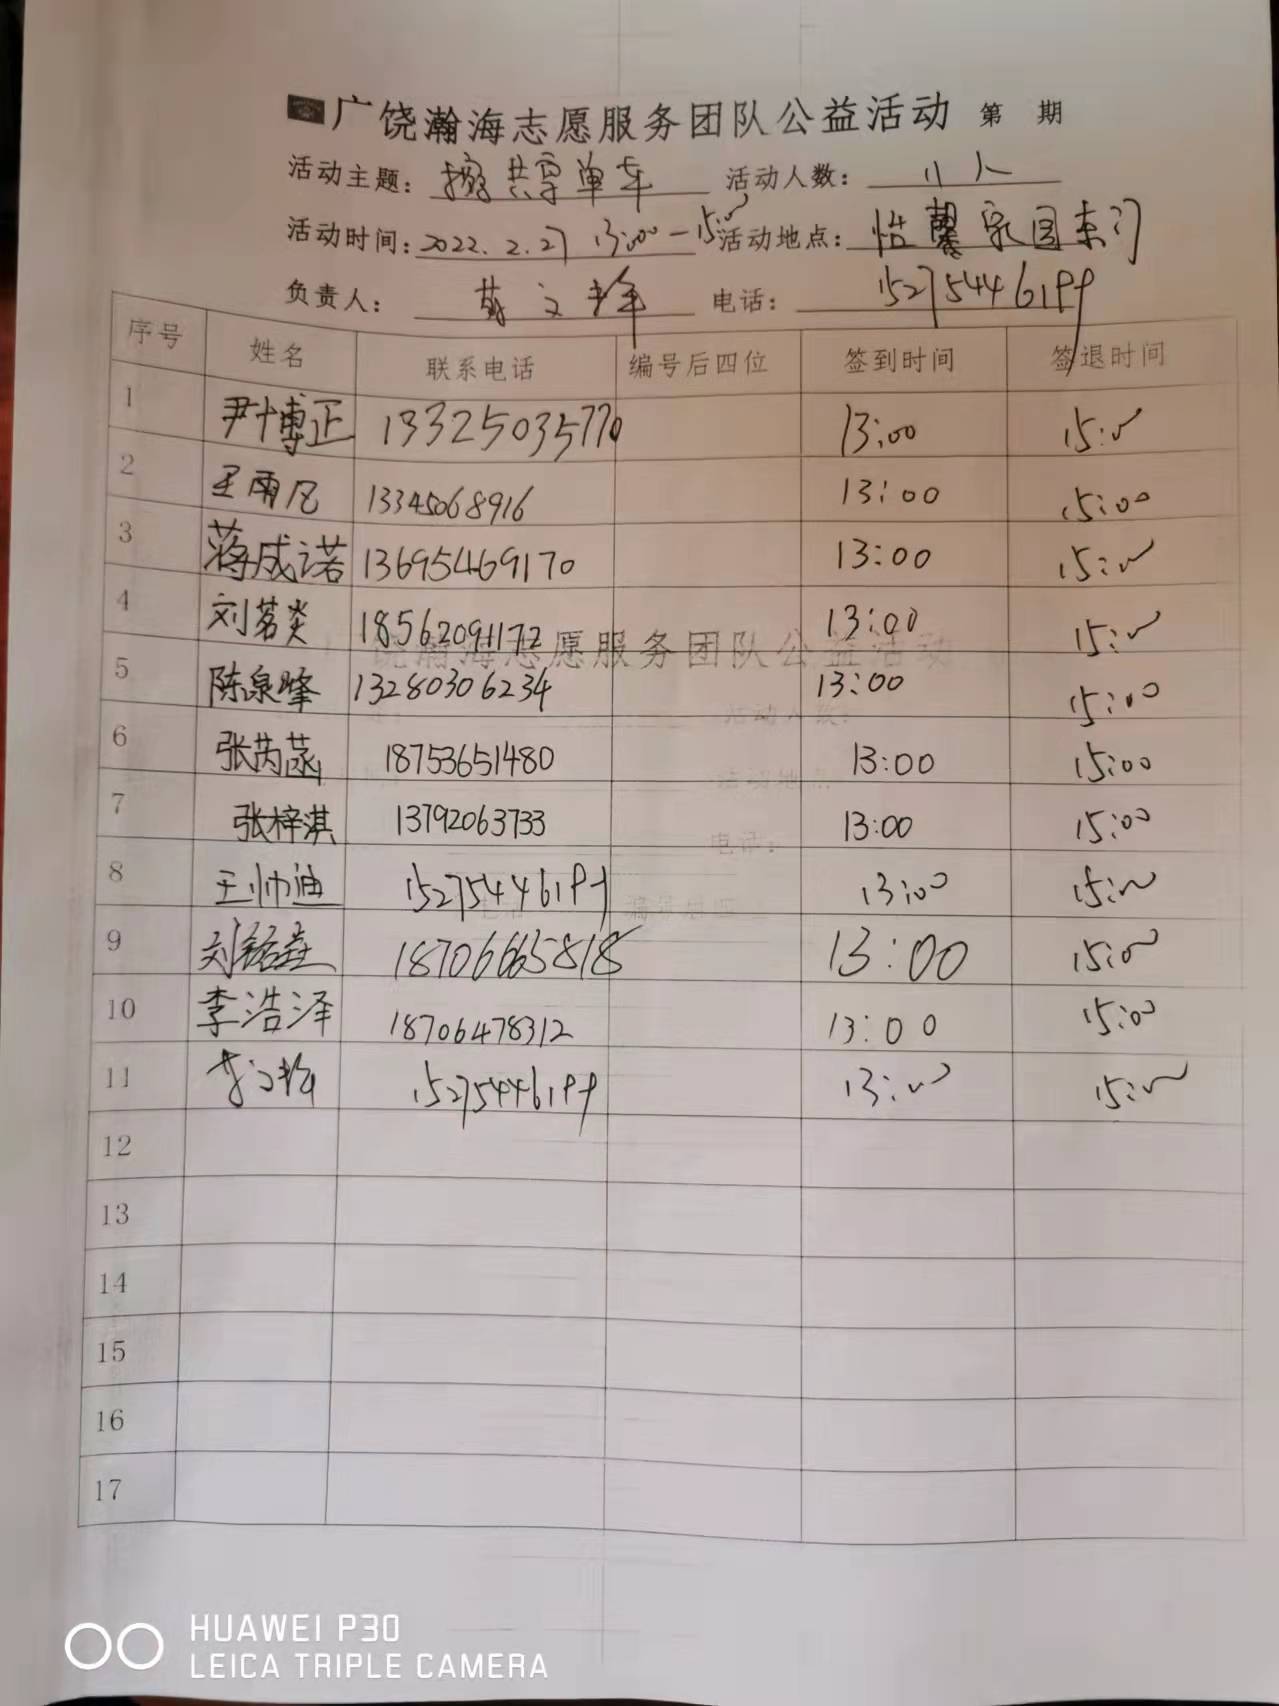 广饶瀚海志愿服务团队公益活动 第 期
活动主题: 擦共享单车 活动人数: 11人
活动时间: 2022.2.27 13:00-15:00 活动地点: 怡馨家园东门
负责人: 电话: 15275446199
序号 姓名 联系电话 编号后四位 签到时间 签退时间
1 尹博正 13325035770 13:00 15:00
2 王雨凡 13345068916 13:00 15:00
3 蒋成诺 13695469170 13:00 15:00
4 刘茗炎 18562091172 13:00 15:00
5 陈泉峰 13280306234 13:00 15:00
6 张芮菡 18753651480 13:00 15:00
7 张梓淇 13792063733 13:00 15:00
8 王帅迪 15275446199 13:00 15:00
9 刘铭 18706665818 13:00 15:00
10 李浩泽 18706478312 13:00 15:00
11 15275446199 13:00 15:00
12
13
14
15
16
17
饶瀚海志愿服务团队公益活动
活动人数:
活动地点
电话:
HUAWEI P30
LEICA TRIPLE CAMERA